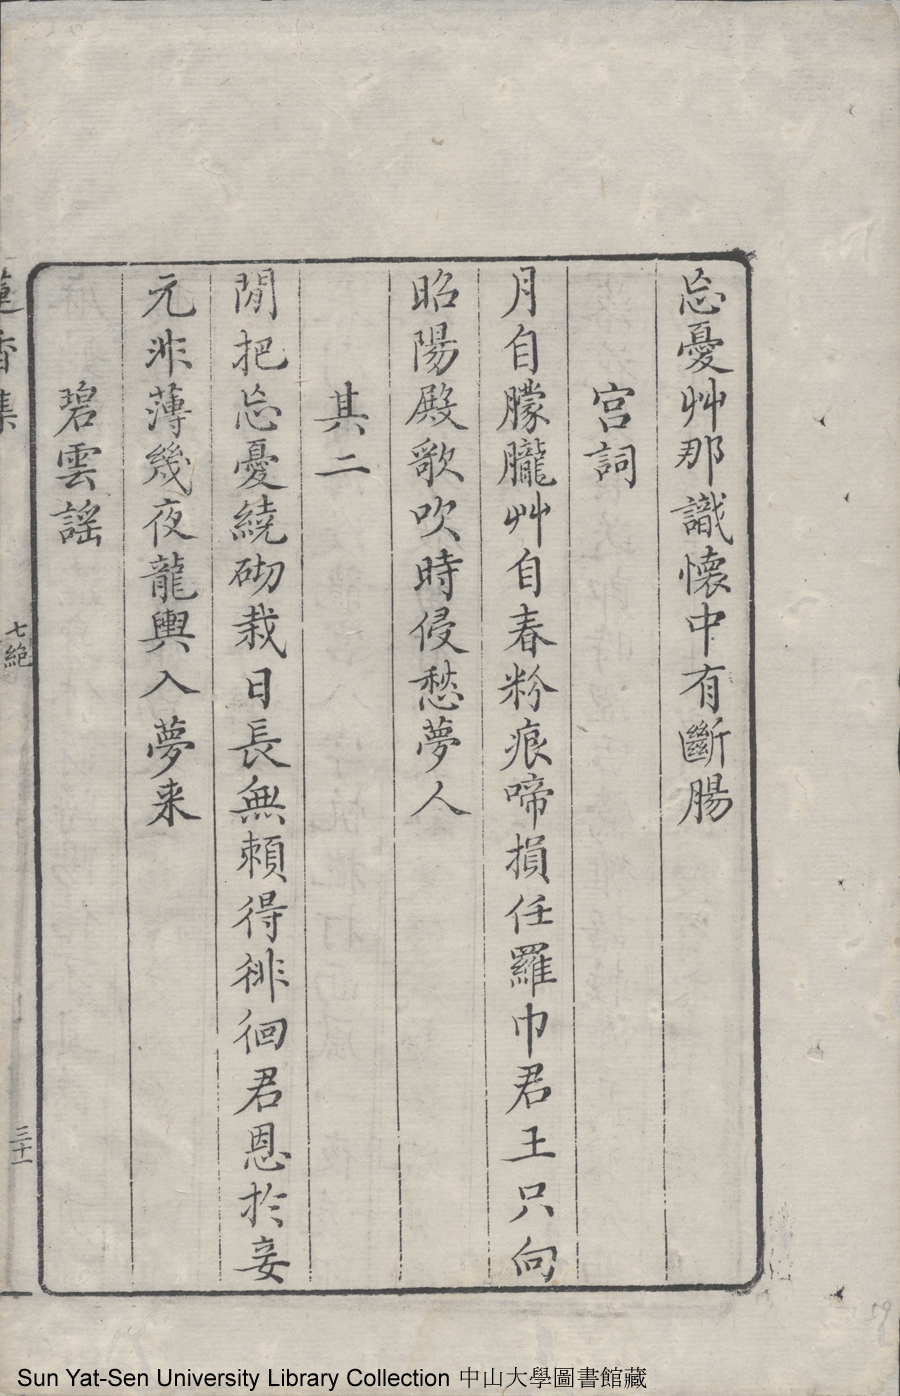 忘憂艸那識懷中有斷腸
宮詞
月自朦朧艸自春粉痕啼損任羅巾君王只向
昭陽殿歌吹時侵愁夢人
其二
閒把忘憂繞砌栽日長無賴得徘徊君恩扵妾
元非薄幾夜龍輿入夢来
碧雲謠
蓮香集
七絶
三十一
59
Sun Yat-Sen University Library Collection 中山大學圖書館藏